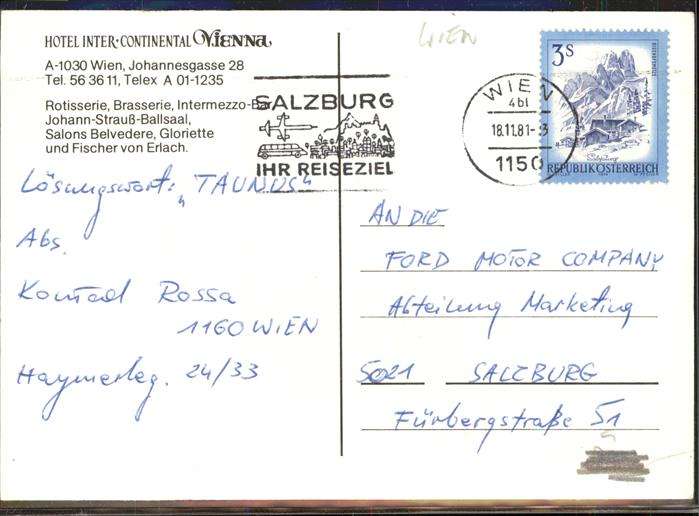 HOTEL INTER·CONTINENTAL VIENNA
A-1030 Wien, Johannesgasse 28
Tel. 56 36 11, Telex A 01-1235
Rotisserie, Brasserie, Intermezzo-Bar,
Johann-Strauß-Ballsaal,
Salons Belvedere, Gloriette
und Fischer von Erlach.
WIEN
SALZBURG
IHR REISEZIEL
WIEN
4bl
18.11.81-
1150
3S
REPUBLIK ÖSTERREICH
Lösungswort: „TAUNUS"
Abs.
Konrad Rossa
1160 WIEN
24/33
AN DIE
FORD MOTOR COMPANY
Abteilung Marketing
5021 SALZBURG
Fürbergstraße 51